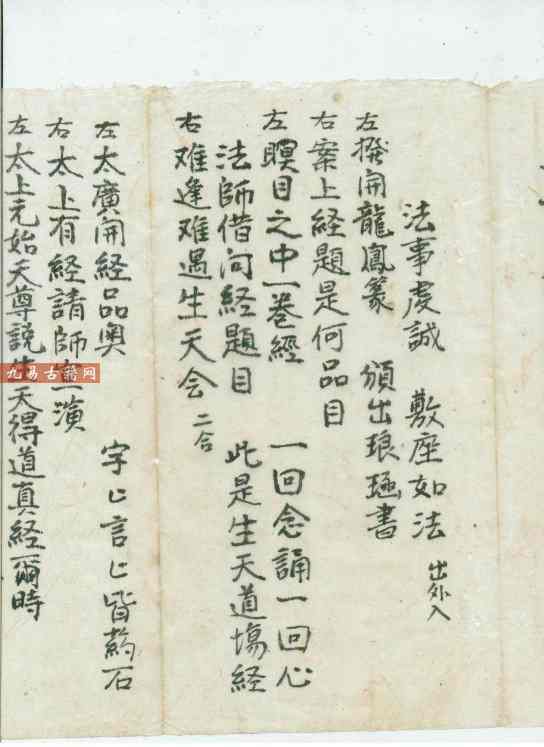 法事虔誠　敷座如法　出外入
左撥開龍鳳篆　頒出琅函書
右案上経題是何品目
左瞑目之中一巻經　一回念誦一回心
法師借问経題目　此是生天道塲経
右难逢难遇生天会　二合
左太廣開経品奥　字〻言〻皆药石
右太上有経請師宣演
左太上元始天尊説生天得道真経爾時
九易古籍网